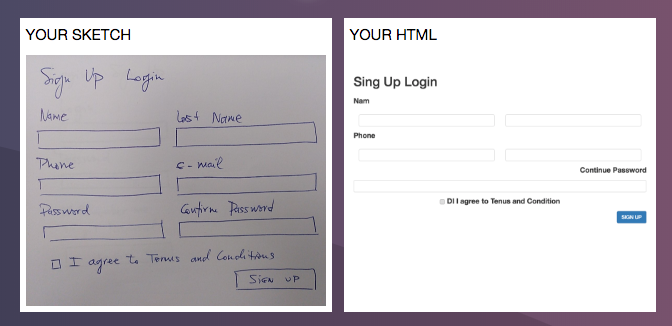 YOUR SKETCH
Sign Up Login
Name Last Name
Phone e-mail
Password Confirm Password
I agree to Terms and Conditions
SIGN UP
YOUR HTML
Sing Up Login
Nam
Phone
Continue Password
DI I agree to Tenus and Condition
SIGN UP